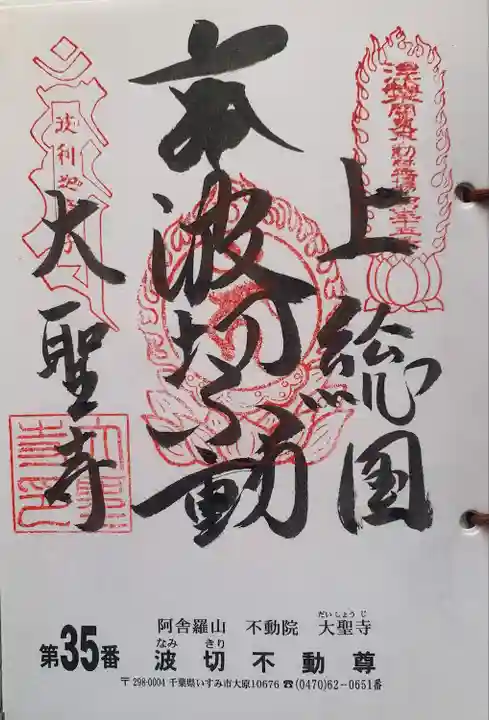 上総国
奉 波切不動
大聖寺
阿舎羅山 不動院 大聖寺
だいしょうじ
第35番 波切不動尊
なみ きり
〒298-0004 千葉県いすみ市大原10676 ☎(0470)62-0651番